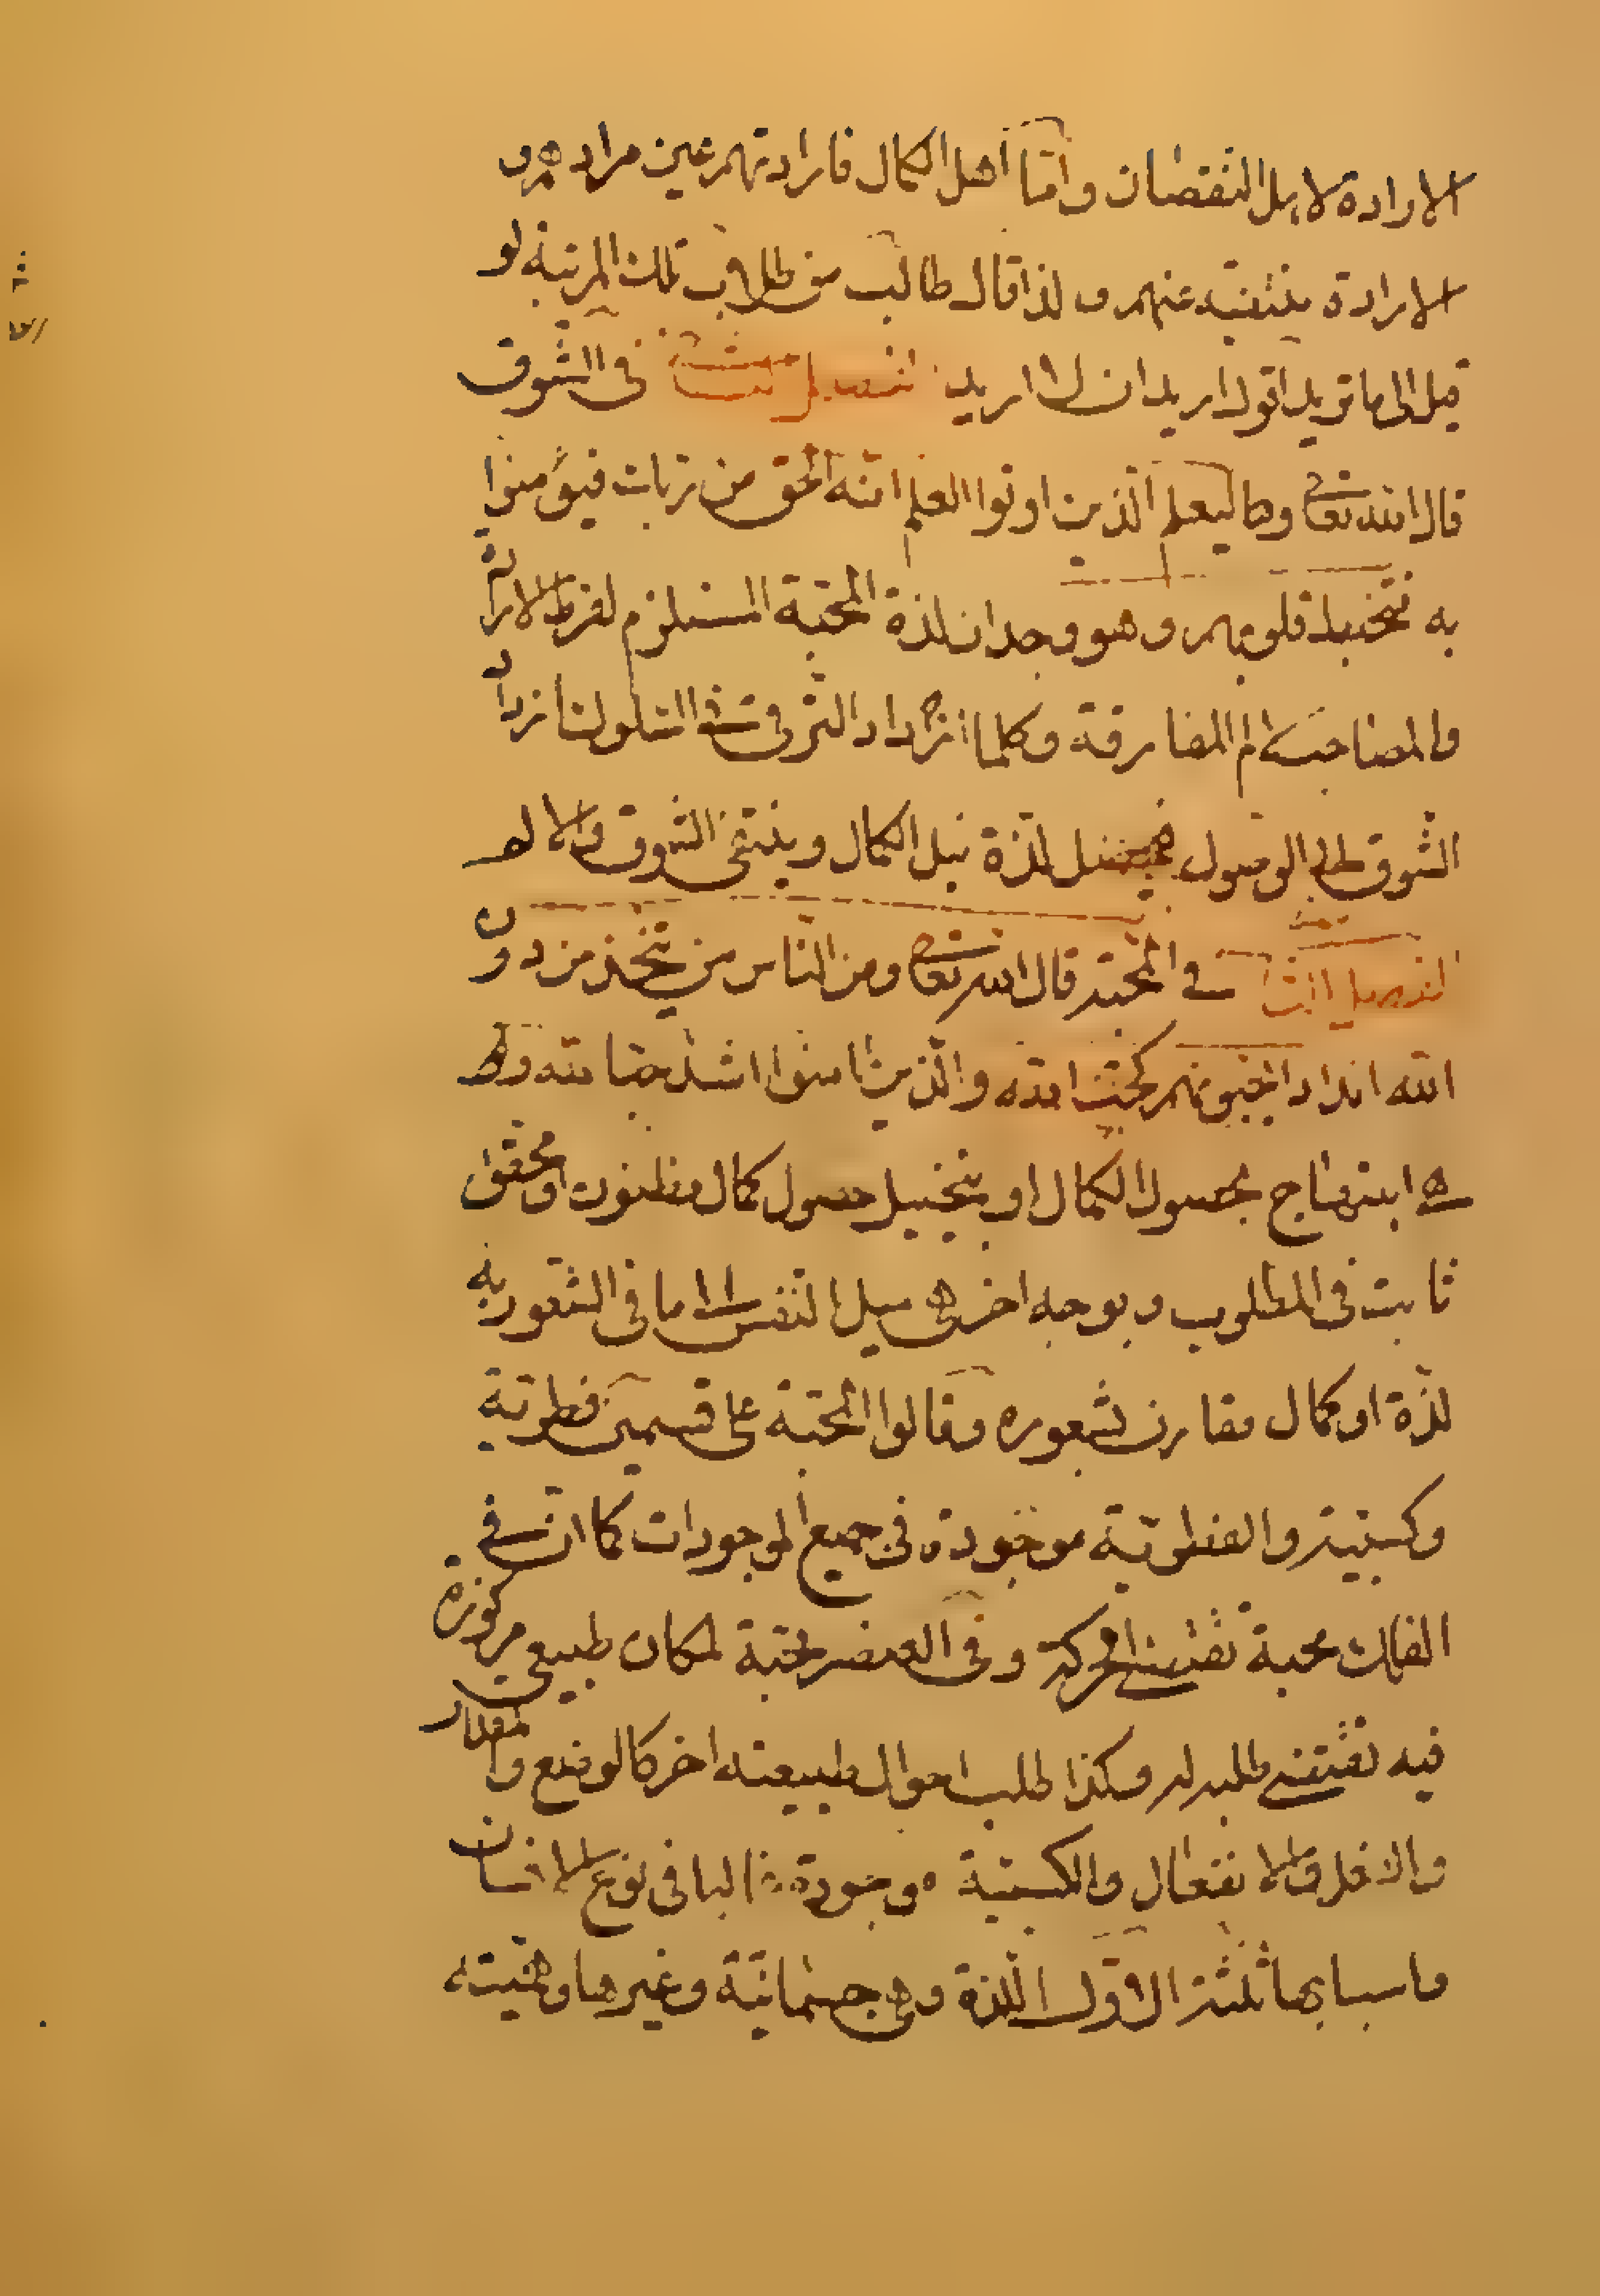 الارادة لاهل النقصان وامّا اهل الكمال فارادتهم عين مرادهم و
الارادة منتفية عنهم و لذا قال طالب من طلاب تلك المرتبة لو
قيل لى ما تريد اقول اريد ان لا اريد الفصل فى الشوق
قال الله تعالى وليعلم الّذين اوتوا العلم انّه الحق من ربك فيؤمنوا
به فتخبت قلوبهم و هو وجدان لذة المحبّة المستلزم لفرط الارادة
والمصاحبة الم المفارقة وكلما ازداد الترقى فى السلوك ازداد
الشوق الى الوصول لذّة نيل الكمال وينتفى الشوق والالم
الفصل الثالث فى المحبّة قال الله تعالى ومن النّاس من يتّخذ من دون
الله اندادا يحبّونهم كحبّ الله والّذين امنوا اشدّ حبّا لله والمحبة
هى ابتهاج بحصول الكمال او بتخييل حصول كمال مظنون او محقق
ثابت فى المطلوب و بوجه اخر هى ميل النّفس الى ما فى الشعور به
لذّة او كمال مقارن لشعوره وقالوا المحبّة على قسمين فطريّة
وكسبيّة والفطريّة موجودة فى جميع الموجودات كما انّ فى
الفلك محبة تقتضى الحركة و فى العنصر محبّة لمكان طبيعى مركوزة
فيه تقتضى طلبه له وكذا طلب احوال طبيعته اخر كالوضع والمقدار
والفعل والانفعال والكسبيّة موجودة غالبا فى نوع الانسان
واسبابها ثلثة الاوّل اللذة وهى جسمانيّة وغيرها وهميّة